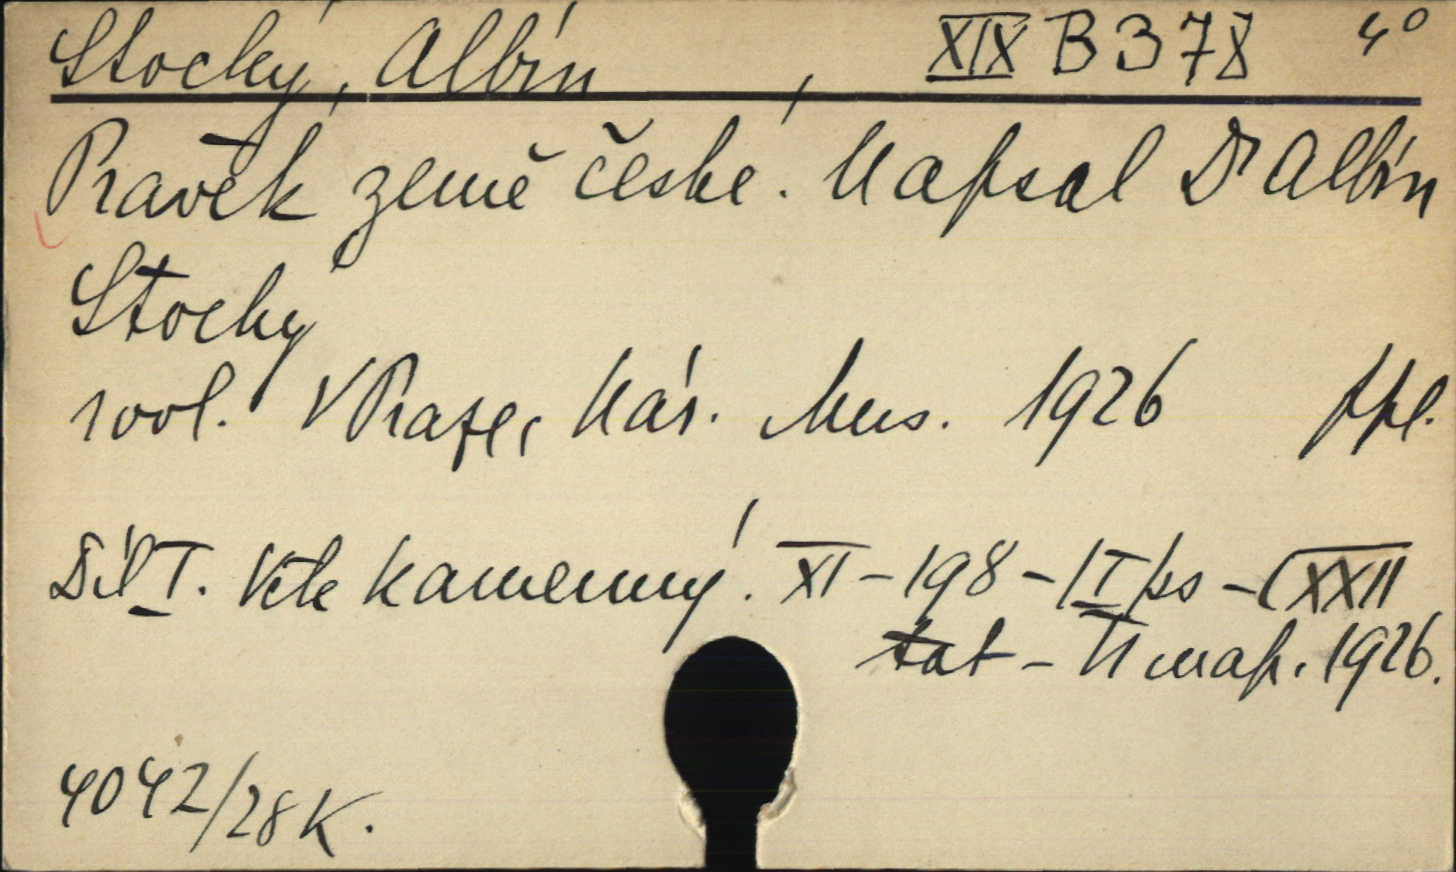 Stocký, Albín, XIX B 378 4°
Pravěk země české. Napsal Dr Albín
Stocký
1 vol. V Praze, Nár. Mus. 1926 ppl.
Díl I. Věk kamenný. XI – 198 – [I] ss – CXXII
tab – II map. 1926.
4042/28 K.